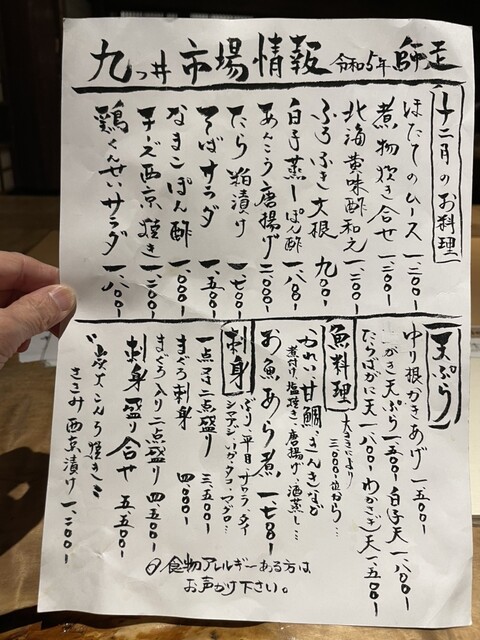 九つ井 市場情報 令和5年 師走
十二月のお料理
ほたてのムース 一、二〇〇-
煮物炊き合せ 一、二〇〇-
北海黄味酢和え 一、二〇〇-
ふろふき大根 九〇〇-
白子蒸しぽん酢 一、八〇〇-
あんこう唐揚げ 二、〇〇〇-
たら粕漬け 一、七〇〇-
そばサラダ 一、五〇〇-
なまこぽん酢 一、〇〇〇-
チーズ西京焼き 一、二〇〇-
鶏くんせいサラダ 一、八〇〇-
天ぷら
ゆり根かきあげ 一、五〇〇-
かき天ぷら 一、五〇〇- 白子天 一、八〇〇-
たらばがに天 一、八〇〇- わかさぎ天 一、五〇〇-
魚料理
大きさにより
3000位から…
かれい、甘鯛、きんきなど
煮付け、塩焼き、唐揚げ、酒蒸し…
お魚あら煮 一、七八〇-
刺身
ぶり、平目、サワラ、タイ
シマアジ、イカ、タコ、マグロ…
一点又は二点盛り 三、五〇〇-
まぐろ刺身 四、〇〇〇-
まぐろ入り二点盛り 四、五〇〇-
刺身盛り合せ 五、五〇〇-
"炭火こんろ焼き"
ささみ西京漬け 一、二〇〇-
食物アレルギーある方は
お声がけ下さい。